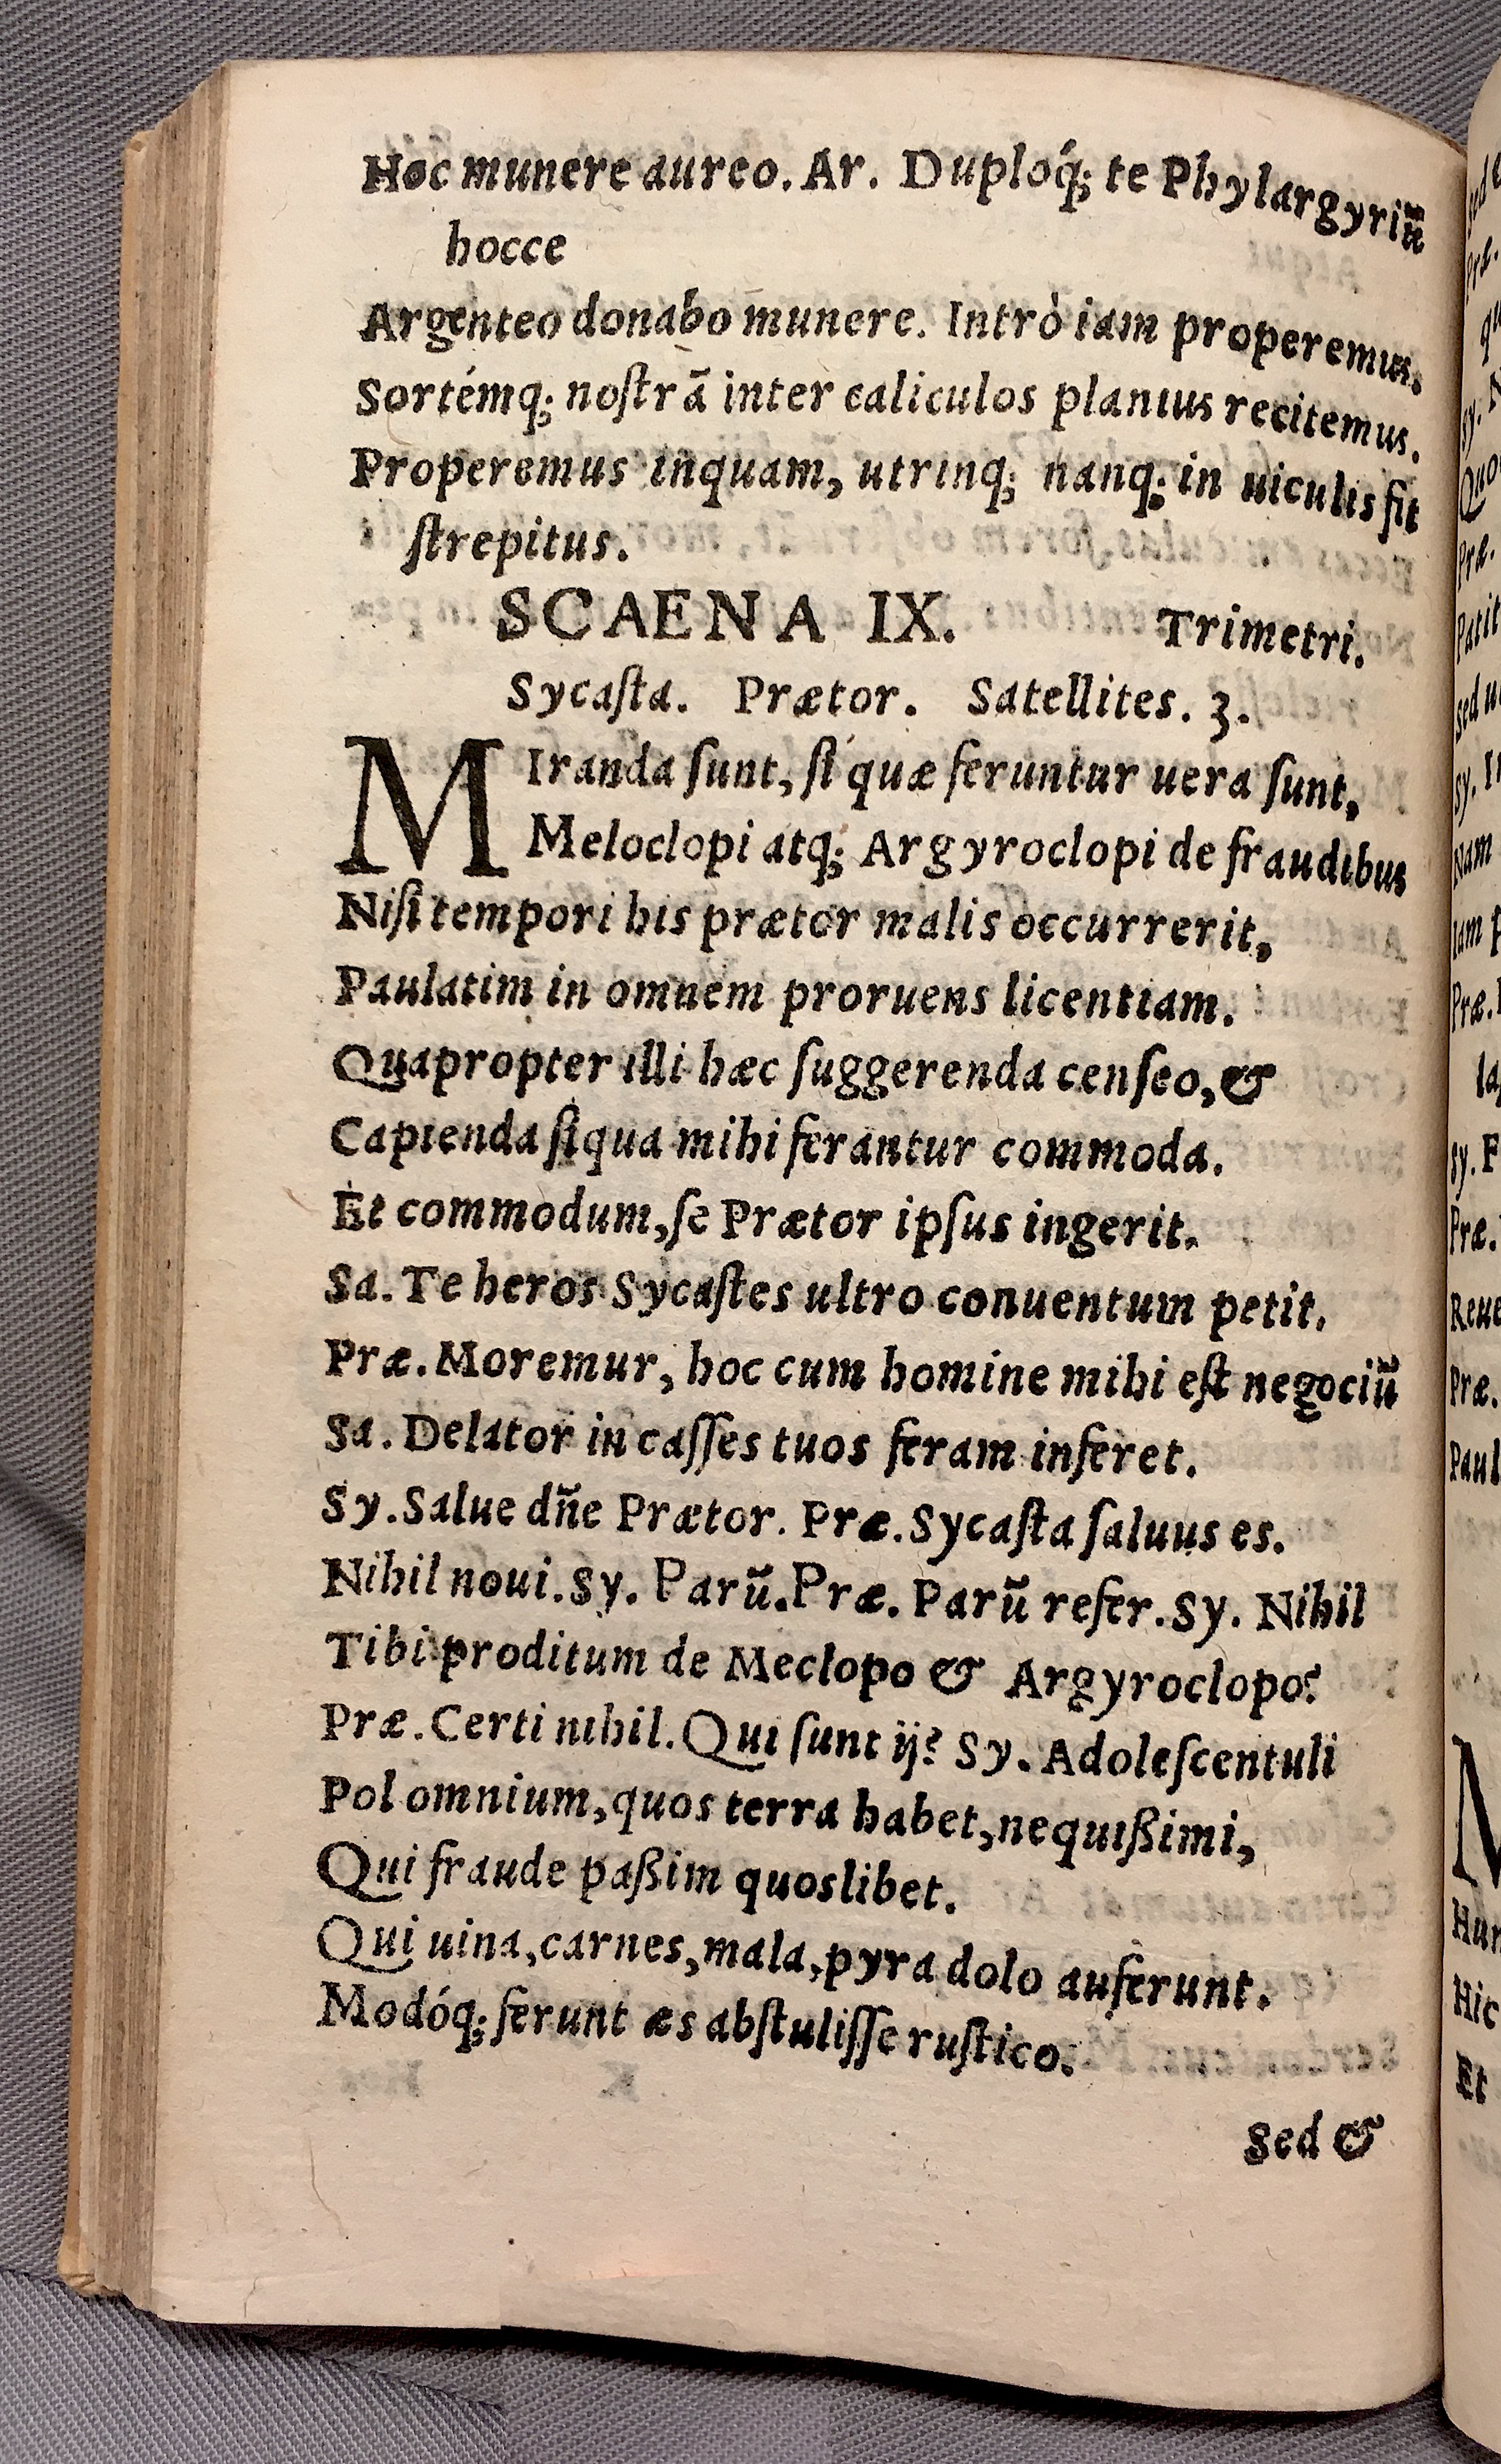 Hoc munere aureo. Ar. Duplóq; te Phylargyriũ
hocce
Argenteo donabo munere. Intrò iam properemus.
Sortémq; noſtrã inter caliculos planius recitemus.
Properemus inquam, utrinq; nanq; in uiculis fit
ſtrepitus.
SCAENA IX. Trimetri.
Sycaſta. Prætor. Satellites. 3.
MIranda ſunt, ſi quæ feruntur uera ſunt,
Meloclopi atq; Argyroclopi de fraudibus
Niſi tempori his prætor malis occurrerit,
Paulatim in omnem proruens licentiam.
Quapropter illi hæc ſuggerenda cenſeo, &
Capienda ſiqua mihi ferantur commoda.
Et commodum, ſe Prætor ipſus ingerit.
Sa. Te heros Sycaſtes ultro conuentum petit.
Præ. Moremur, hoc cum homine mihi eſt negociũ
Sa. Delator in caſſes tuos feram inferet.
Sy. Salue dñe Prætor. Præ. Sycaſta ſaluus es.
Nihil noui. Sy. Parũ. Præ. Parũ refer. Sy. Nihil
Tibi proditum de Meclopo & Argyroclopo?
Præ. Certi nihil. Qui ſunt ij? Sy. Adoleſcentuli
Pol omnium, quos terra habet, nequißimi,
Qui fraude paßim quoslibet.
Qui uina, carnes, mala, pyra dolo auferunt.
Modóq; ferunt æs abſtuliſſe ruſtico.
Sed &